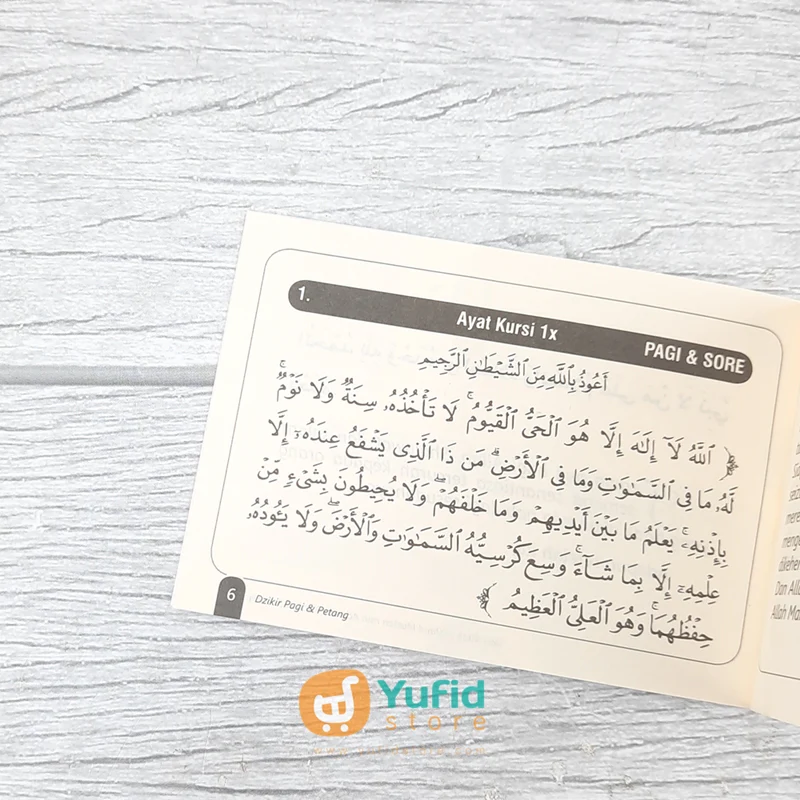 1.
Ayat Kursi 1x
PAGI & SORE
أَعُوذُ بِاللَّهِ مِنَ الشَّيْطَانِ الرَّجِيمِ
﴿ ٱللَّهُ لَآ إِلَٰهَ إِلَّا هُوَ ٱلْحَىُّ ٱلْقَيُّومُ ۚ لَا تَأْخُذُهُۥ سِنَةٌ وَلَا نَوْمٌ ۚ
لَّهُۥ مَا فِى ٱلسَّمَٰوَٰتِ وَمَا فِى ٱلْأَرْضِ ۗ مَن ذَا ٱلَّذِى يَشْفَعُ عِندَهُۥٓ إِلَّا
بِإِذْنِهِۦ ۚ يَعْلَمُ مَا بَيْنَ أَيْدِيهِمْ وَمَا خَلْفَهُمْ ۖ وَلَا يُحِيطُونَ بِشَىْءٍ مِّنْ
عِلْمِهِۦٓ إِلَّا بِمَا شَآءَ ۚ وَسِعَ كُرْسِيُّهُ ٱلسَّمَٰوَٰتِ وَٱلْأَرْضَ ۖ وَلَا يَـُٔودُهُۥ
حِفْظُهُمَا ۚ وَهُوَ ٱلْعَلِىُّ ٱلْعَظِيمُ ﴾
6
Dzikir Pagi & Petang
Dan All
Allah Ma
Yufid
store